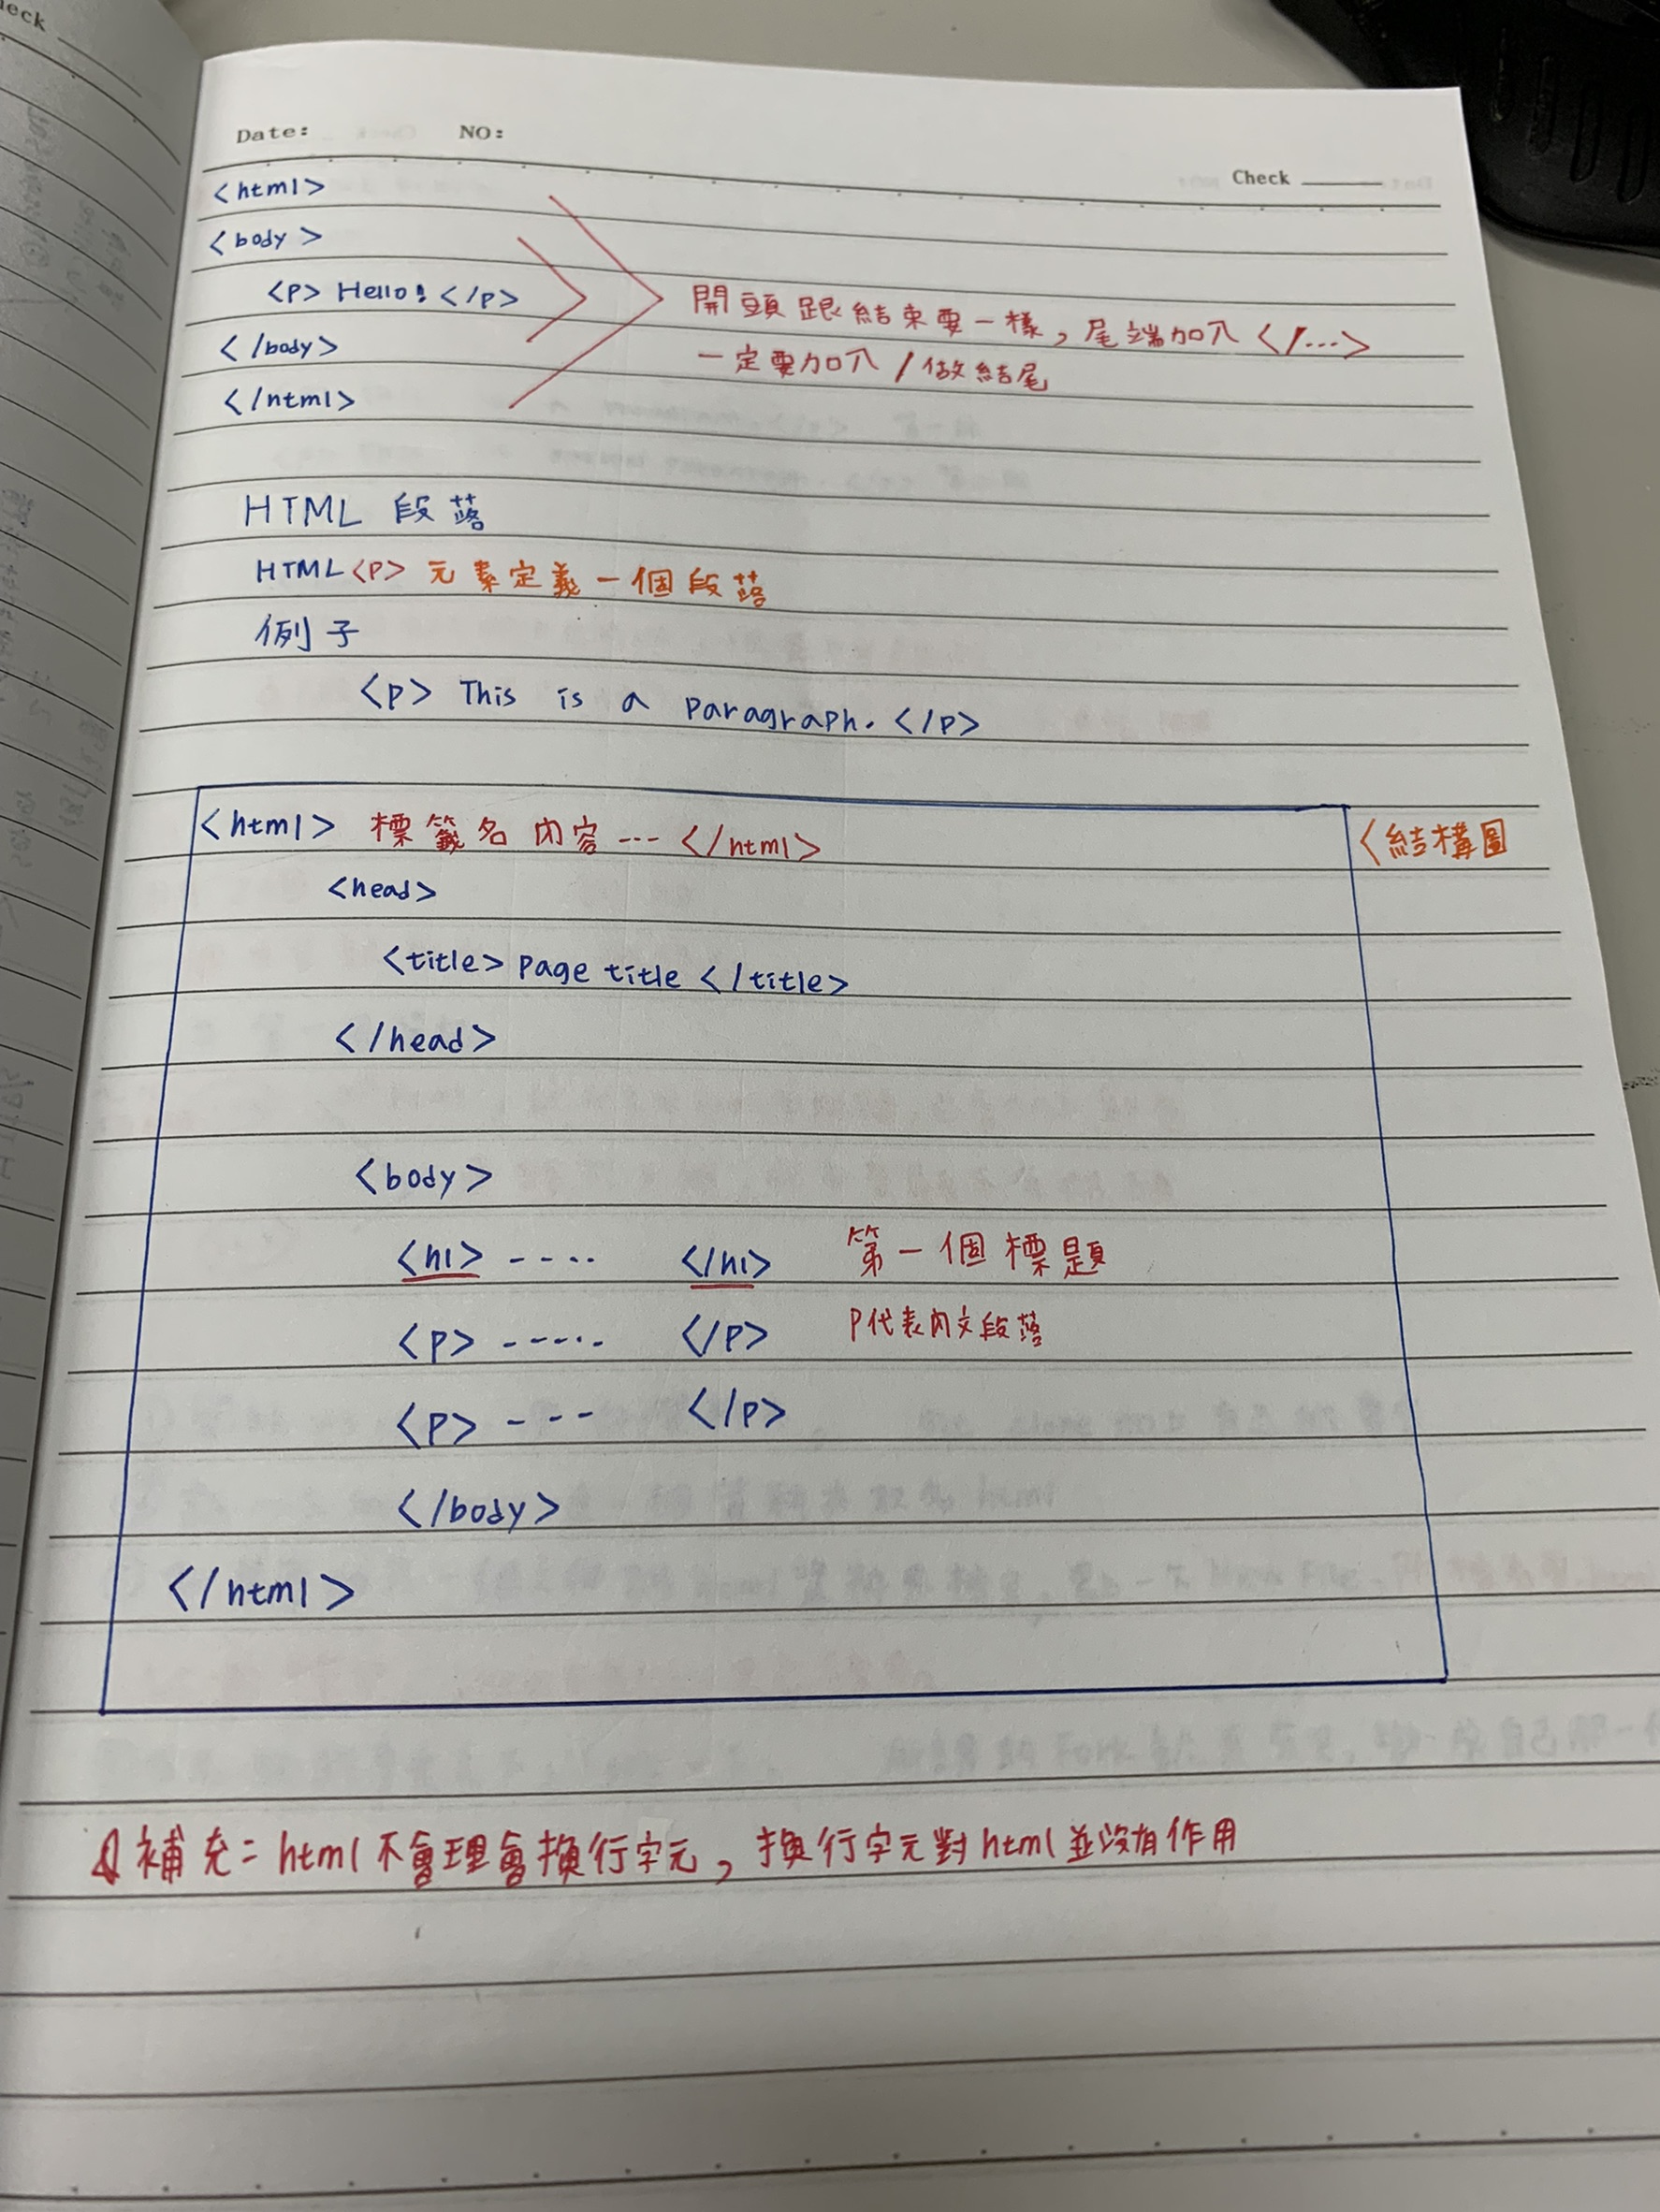 eck
Date: NO:
Check
<html>
<body>
<p> Hello! </p>
</body>
</html>
開頭跟結束要一樣，尾端加入 </...>
一定要加入 / 做結尾
HTML 段落
HTML <p> 元素定義一個段落
例子
<p> This is a paragraph. </p>
<html> 標籤名 內容 --- </html>
<結構圖
<head>
<title> page title </title>
</head>
<body>
<h1> ---- </h1> 第一個標題
<p> ------ </p> P代表內文段落
<p> --- </p>
</body>
</html>
補充= html 不會理會換行字元，換行字元對html並沒有作用